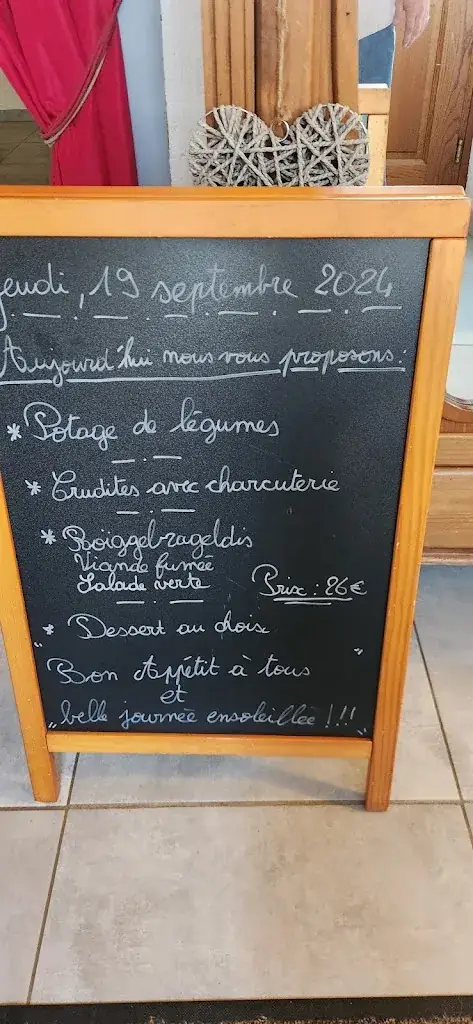 jeudi, 19 septembre 2024
Aujourd'hui nous vous proposons :
* Potage de légumes
* Crudites avec charcuterie
* Roïggebrageldis
Viande fumée
Salade verte
Prix : 26€
* Dessert au choix
" Bon Appétit à tous "
et
" belle journée ensoleillée !!! "